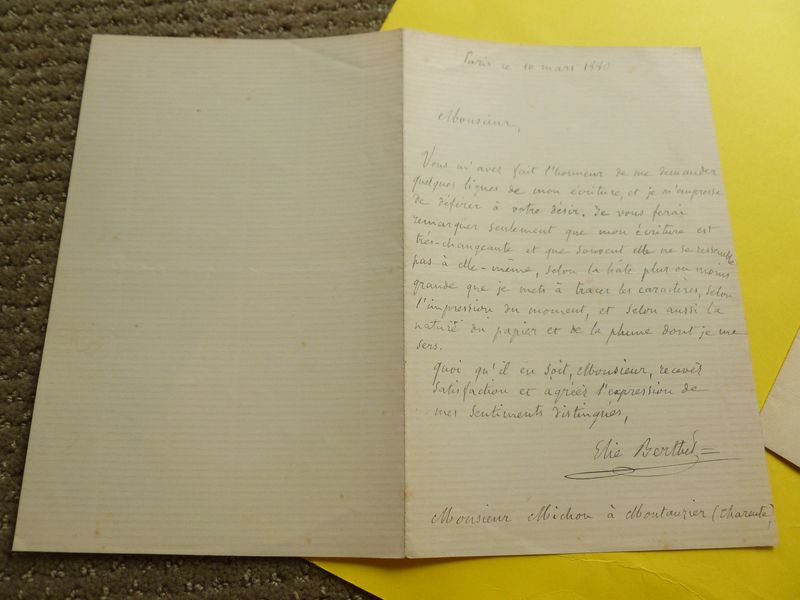 Paris ce 10 mars 1880
Monsieur,
Vous m'avez fait l'honneur de me demander
quelques lignes de mon écriture, et je m'empresse
de déférer à votre désir. Je vous ferai
remarquer seulement que mon écriture est
très-changeante et que souvent elle ne se ressemble
pas à elle-même, selon la hâte plus ou moins
grande que je mets à tracer les caractères, selon
l'impression du moment, et selon aussi la
nature du papier et de la plume dont je me
sers.
Quoi qu'il en soit, Monsieur, recevez
satisfaction et agréez l'expression de
mes sentiments distingués,
Elie Berthet
Monsieur Michon à Montauzier (Charente)